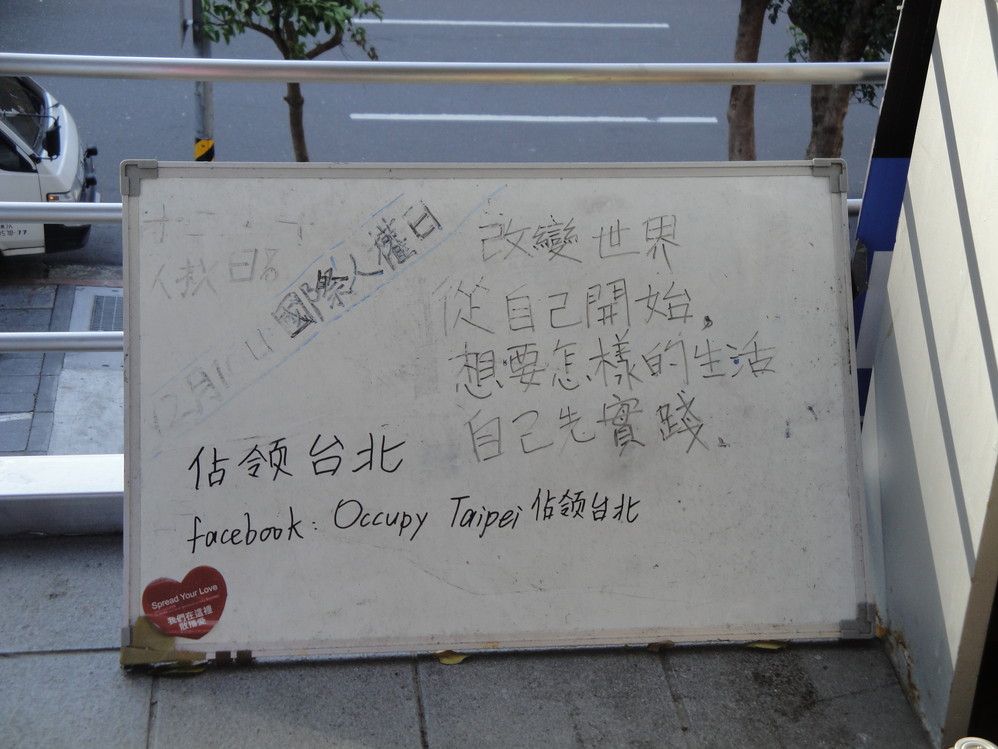 國際人權日
改變世界
從自己開始,
想要怎樣的生活
自己先實踐.
佔領台北
facebook: Occupy Taipei 佔領台北
Spread Your Love
我們在這裡
散播愛